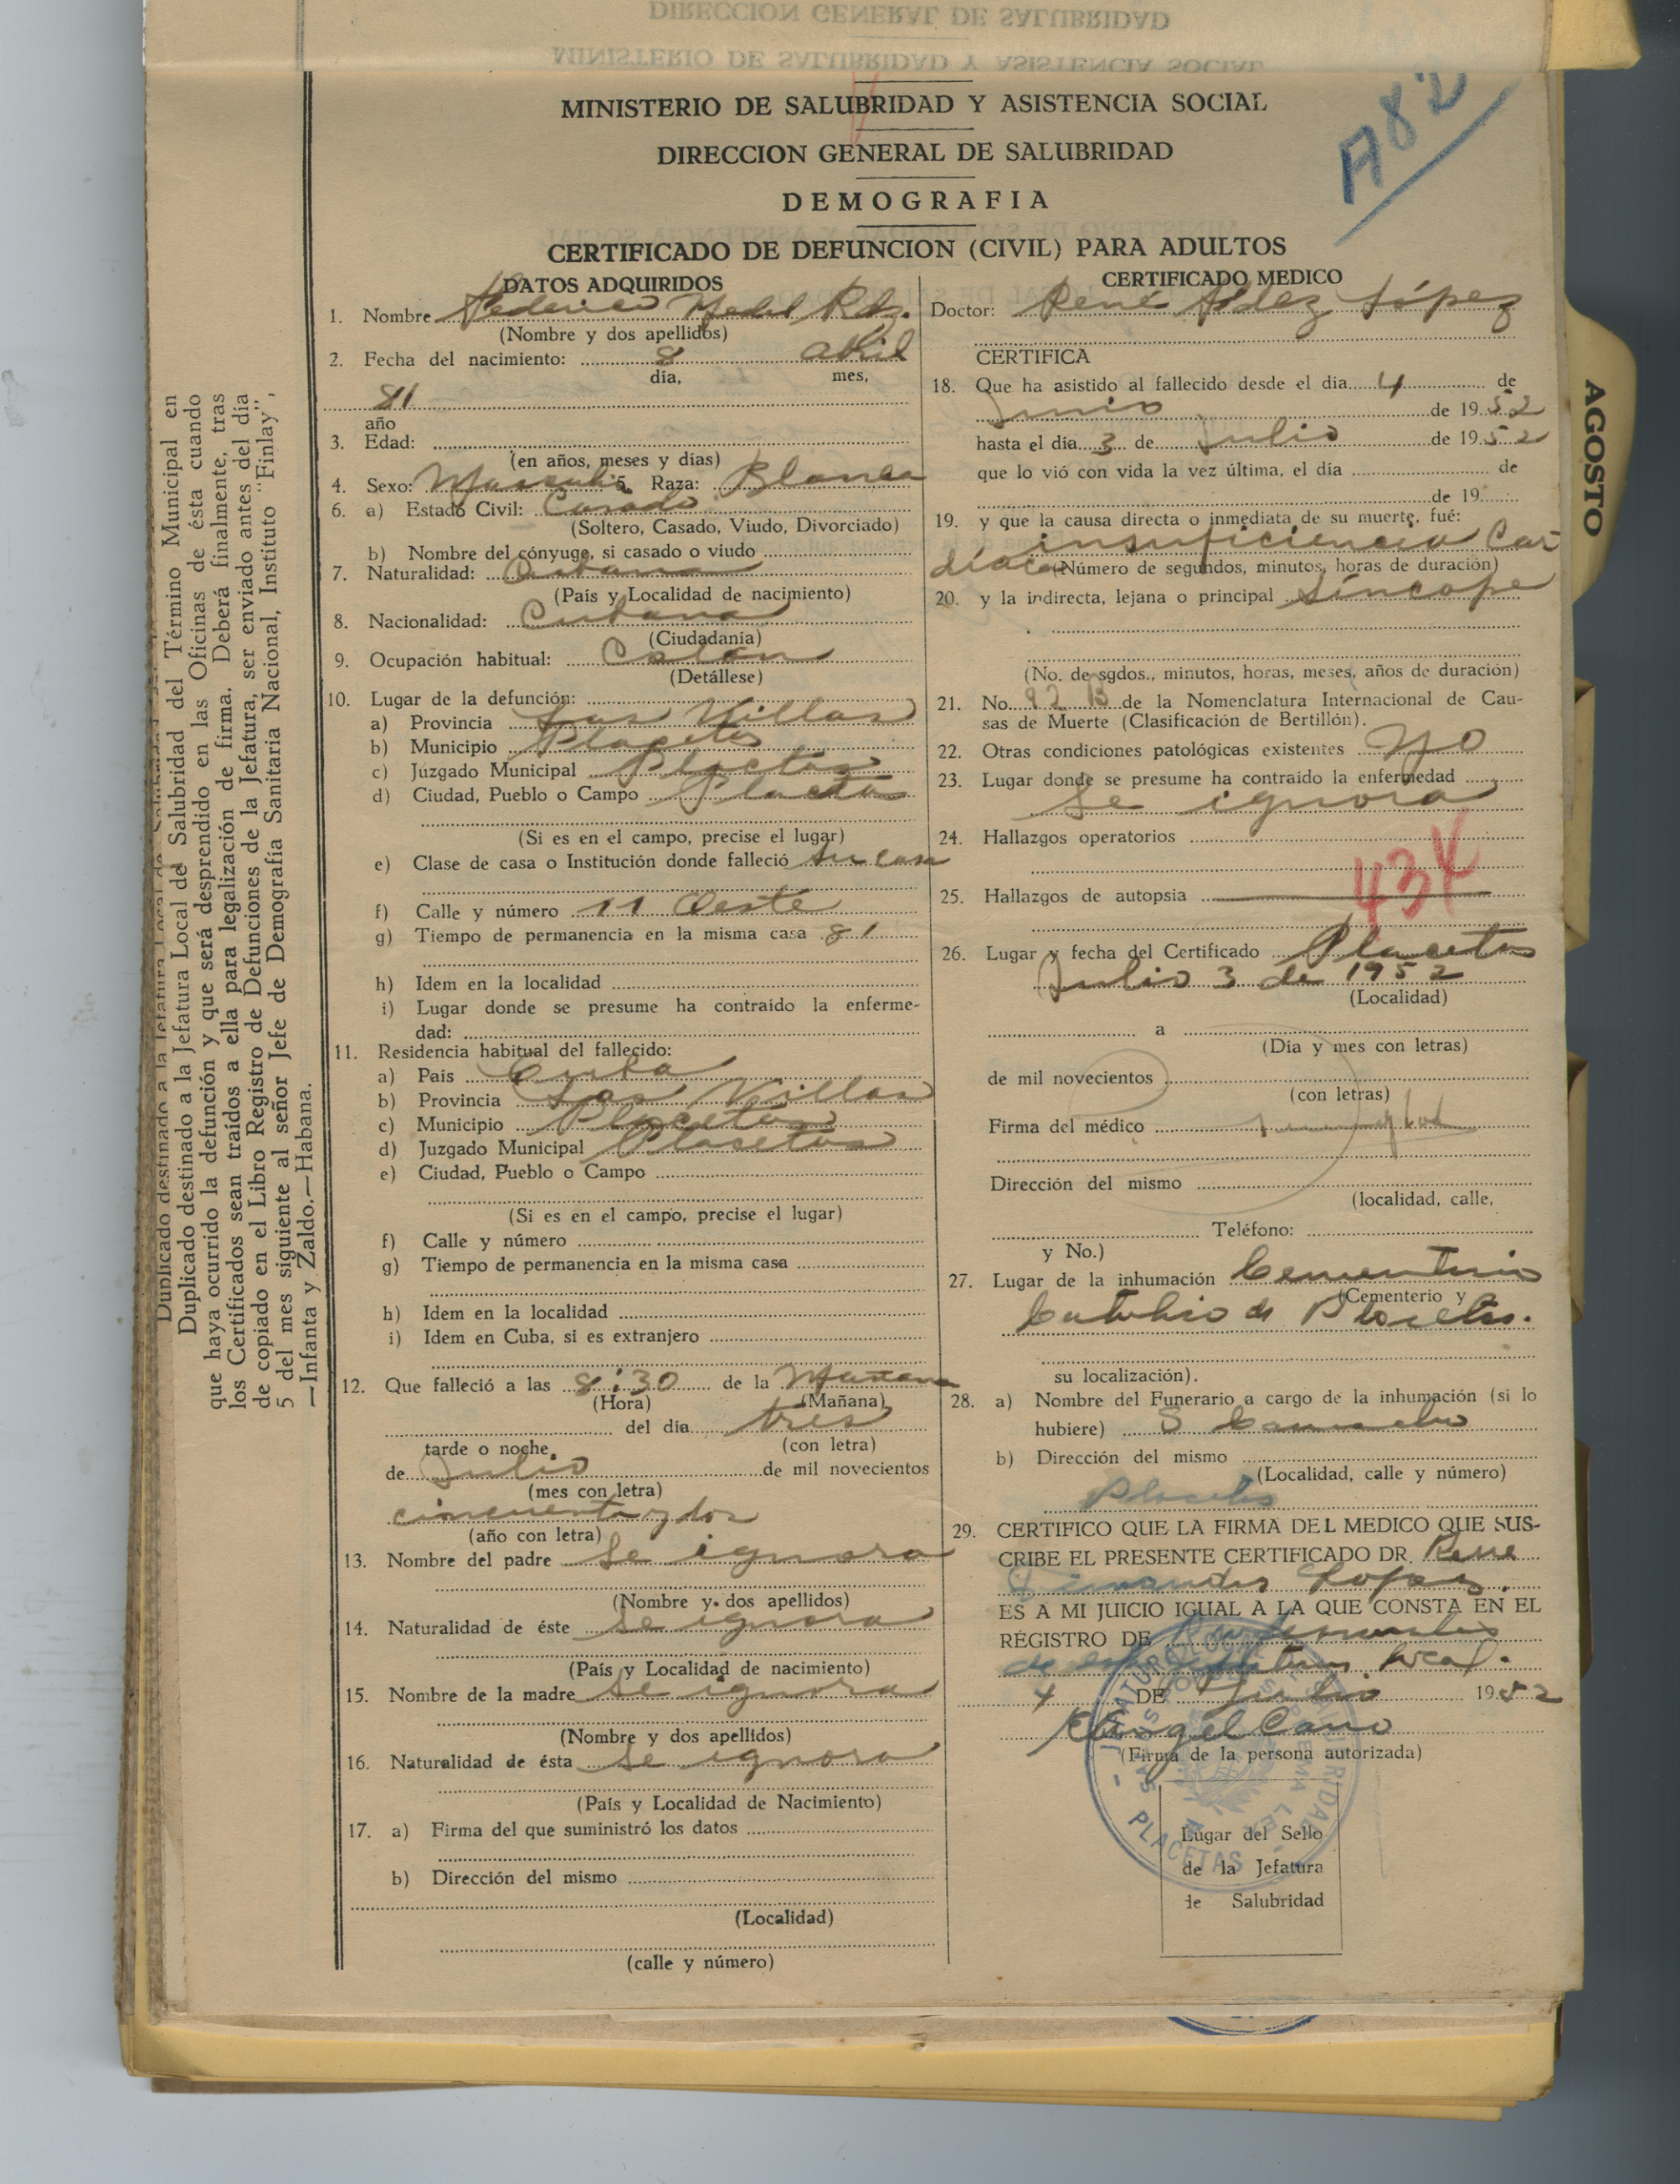 MINISTERIO DE SALUBRIDAD Y ASISTENCIA SOCIAL
DIRECCION GENERAL DE SALUBRIDAD
DEMOGRAFIA
CERTIFICADO DE DEFUNCION (CIVIL) PARA ADULTOS
A82
DATOS ADQUIRIDOS
1. Nombre Federico Medel Rdz.
(Nombre y dos apellidos)
2. Fecha del nacimiento: 8 abril
día, mes,
81
año
3. Edad:
(en años, meses y días)
4. Sexo: Masculi 5. Raza: Blanca
6. a) Estado Civil: Casado
(Soltero, Casado, Viudo, Divorciado)
b) Nombre del cónyuge, si casado o viudo
7. Naturalidad: Cubana
(País y Localidad de nacimiento)
8. Nacionalidad: Cubana
(Ciudadanía)
9. Ocupación habitual:
(Detállese)
10. Lugar de la defunción:
a) Provincia Las Villas
b) Municipio Placetas
c) Juzgado Municipal Placetas
d) Ciudad, Pueblo o Campo Placetas
(Si es en el campo, precise el lugar)
e) Clase de casa o Institución donde falleció su casa
f) Calle y número 11 Oeste
g) Tiempo de permanencia en la misma casa 81
h) Idem en la localidad
i) Lugar donde se presume ha contraído la enferme-
dad:
11. Residencia habitual del fallecido:
a) País Cuba
b) Provincia Las Villas
c) Municipio Placetas
d) Juzgado Municipal Placetas
e) Ciudad, Pueblo o Campo
(Si es en el campo, precise el lugar)
f) Calle y número
g) Tiempo de permanencia en la misma casa
h) Idem en la localidad
i) Idem en Cuba, si es extranjero
12. Que falleció a las 8:30 de la Mañana
(Hora) (Mañana)
del día tres
tarde o noche (con letra)
de Julio de mil novecientos
(mes con letra)
cincuenta y dos
(año con letra)
13. Nombre del padre Se ignora
(Nombre y dos apellidos)
14. Naturalidad de éste se ignora
(País y Localidad de nacimiento)
15. Nombre de la madre se ignora
(Nombre y dos apellidos)
16. Naturalidad de ésta se ignora
(País y Localidad de Nacimiento)
17. a) Firma del que suministró los datos
b) Dirección del mismo
(Localidad)
(calle y número)
CERTIFICADO MEDICO
Doctor: René López
CERTIFICA
18. Que ha asistido al fallecido desde el día 4 de
Junio de 1952
hasta el día 3 de Julio de 1952
que lo vió con vida la vez última, el día de
de 19
19. y que la causa directa o inmediata de su muerte, fué:
insuficiencia Car
díaca (Número de segundos, minutos, horas de duración)
20. y la indirecta, lejana o principal síncope
(No. de sgdos., minutos, horas, meses, años de duración)
21. No. 92 B de la Nomenclatura Internacional de Cau-
sas de Muerte (Clasificación de Bertillón).
22. Otras condiciones patológicas existentes no
23. Lugar donde se presume ha contraído la enfermedad
se ignora
24. Hallazgos operatorios
25. Hallazgos de autopsia
26. Lugar y fecha del Certificado Placetas
Julio 3 de 1952
(Localidad)
a
(Día y mes con letras)
de mil novecientos
(con letras)
Firma del médico
Dirección del mismo
(localidad, calle,
Teléfono:
y No.)
27. Lugar de la inhumación Cementerio
(Cementerio y
Católico de Placetas.
su localización).
28. a) Nombre del Funerario a cargo de la inhumación (si lo
hubiere) S Camacho
b) Dirección del mismo
(Localidad, calle y número)
Placetas
29. CERTIFICO QUE LA FIRMA DEL MEDICO QUE SUS-
CRIBE EL PRESENTE CERTIFICADO DR. Rene
Fernandez Lopez.
ES A MI JUICIO IGUAL A LA QUE CONSTA EN EL
REGISTRO DE Profesionales
de esta Jefatura local.
4 DE Julio 1952
Angel Cano
(Firma de la persona autorizada)
PLACETAS
Lugar del Sello
de la Jefatura
de Salubridad
AGOSTO
Duplicado destinado a la Jefatura Local de Salubridad del Término Municipal en
que haya ocurrido la defunción y que será desprendido en las Oficinas de ésta cuando
los Certificados sean traídos a ella para legalización de firma. Deberá finalmente, tras
de copiado en el Libro Registro de Defunciones de la Jefatura, ser enviado antes del día
5 del mes siguiente al señor Jefe de Demografía Sanitaria Nacional, Instituto "Finlay",
—Infanta y Zaldo.—Habana.